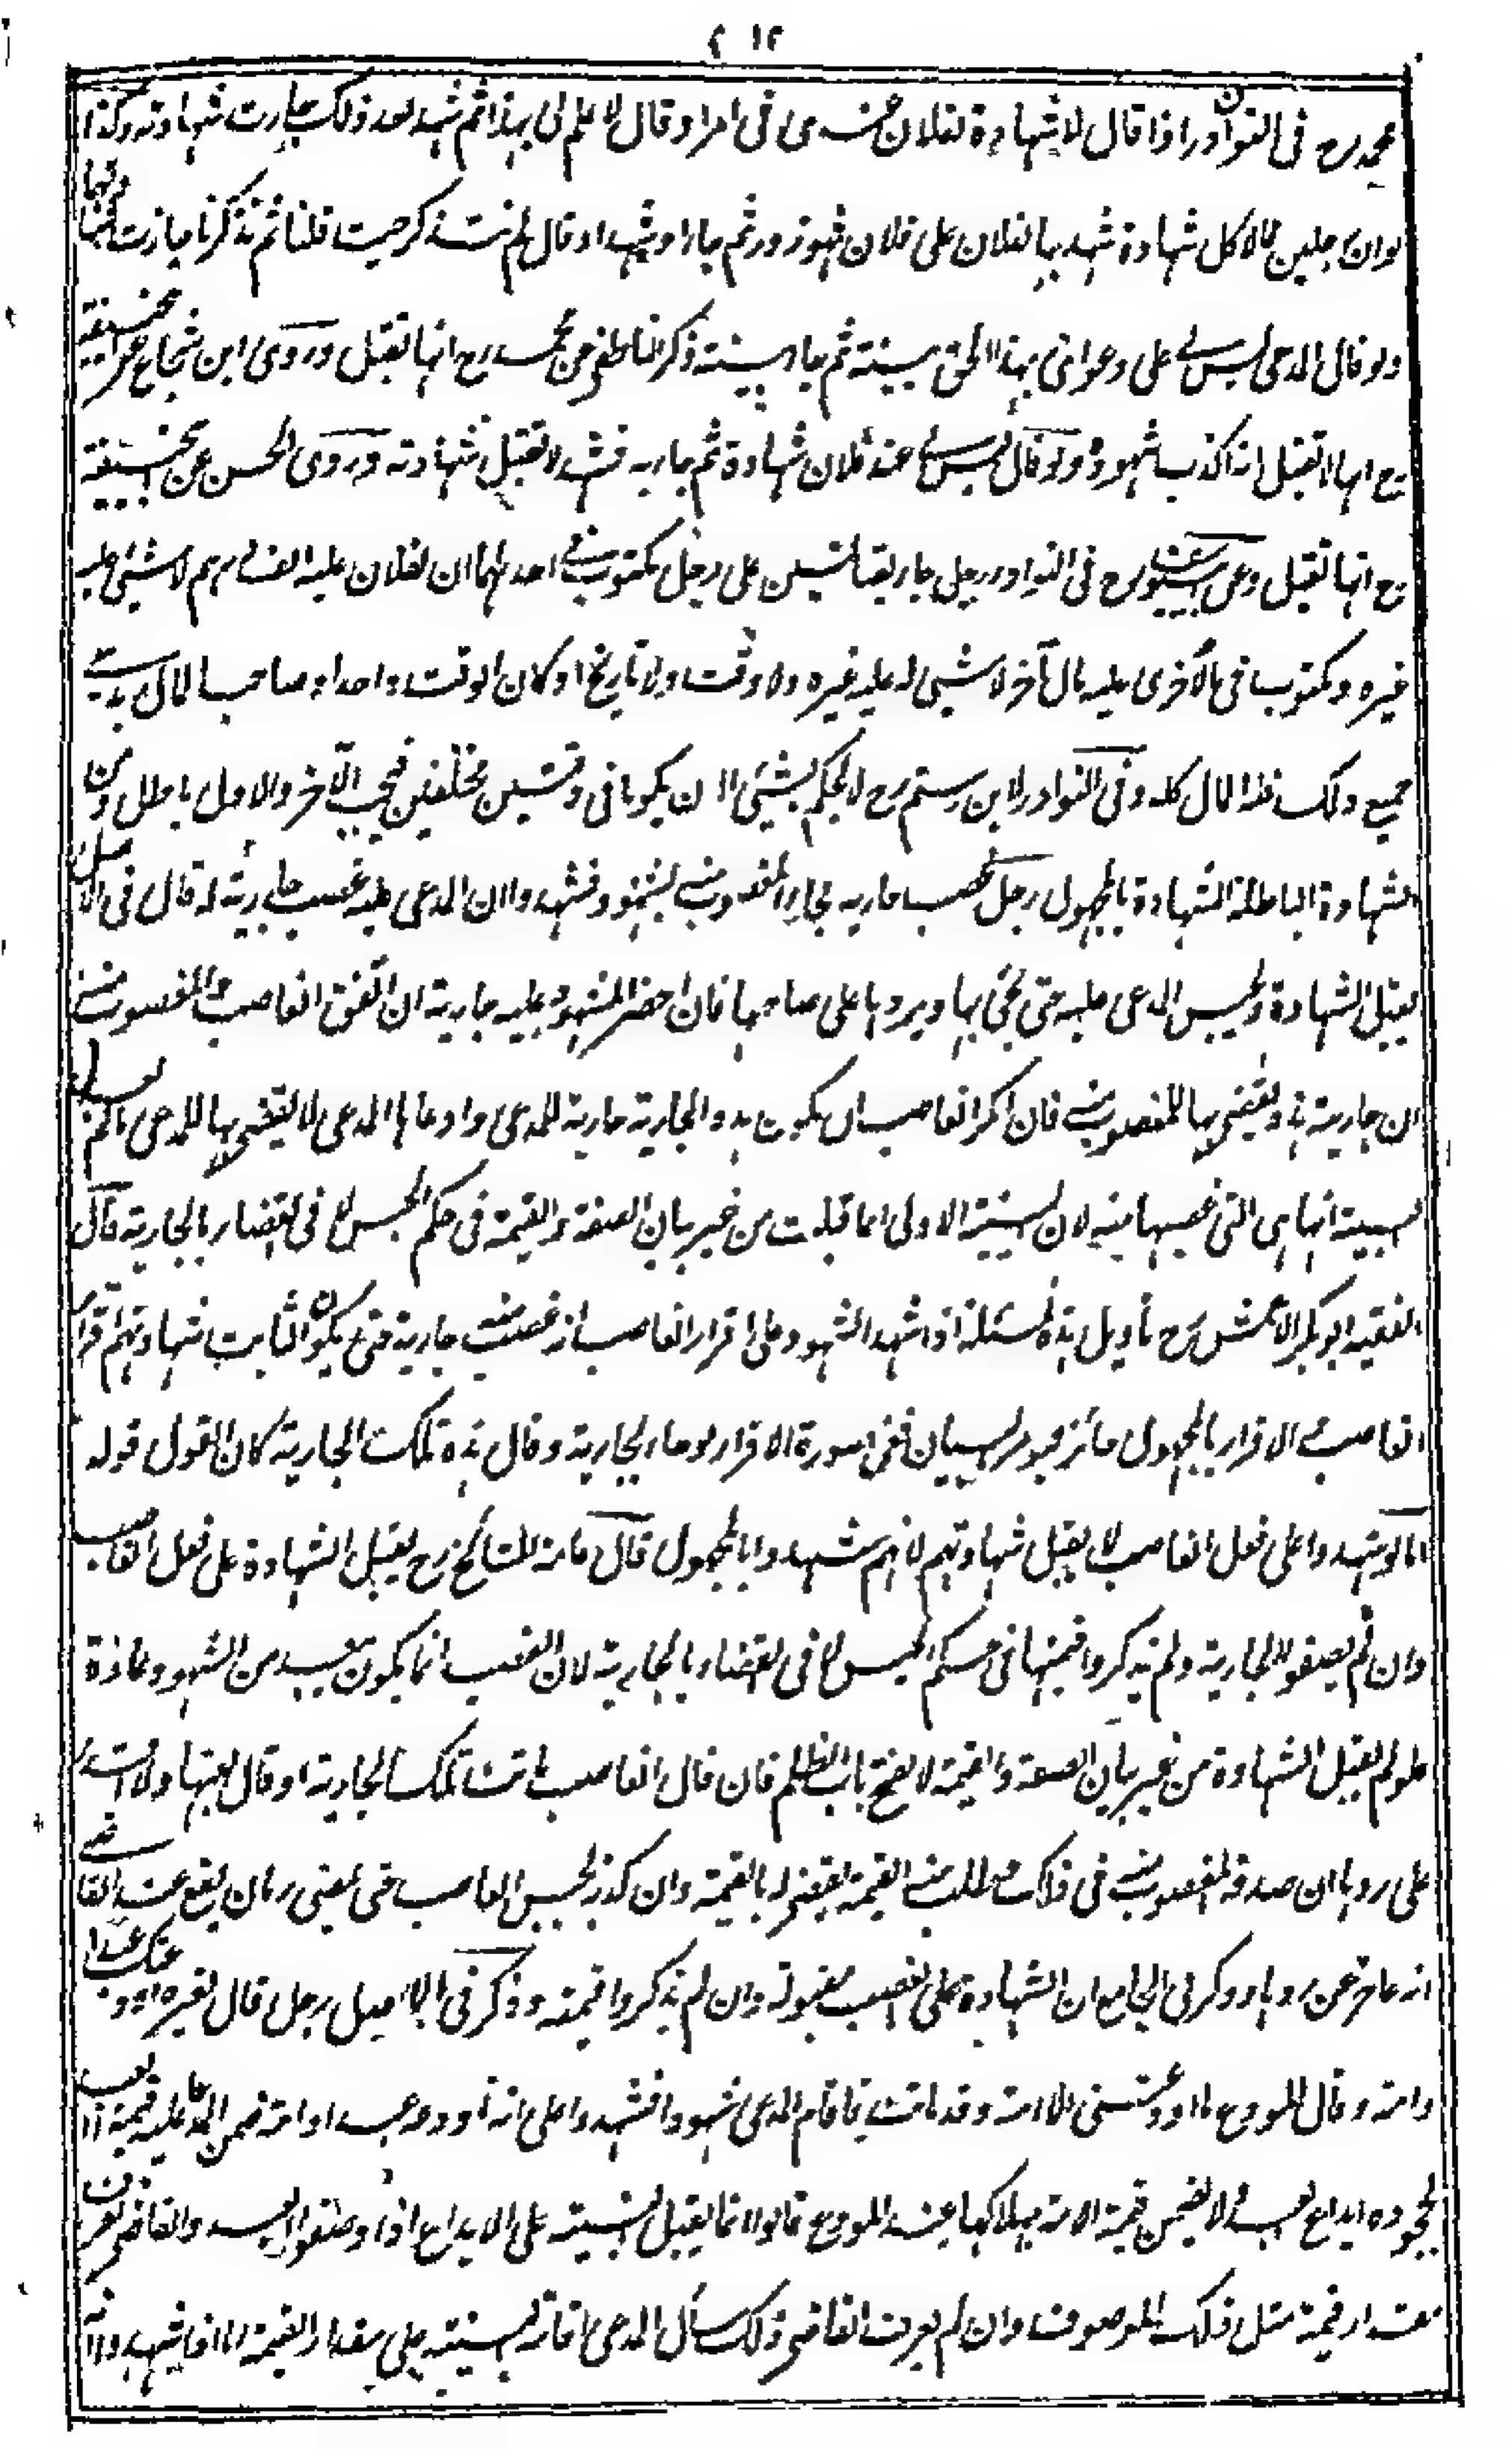 ٤١٢
محمد رح فى النوادر اذا قال لا شهادة لفلان عندى فى امر او قال لا علم لى بهذا ثم شهد بعد ذلك جازت شهادته وكذا
لو ان رجلين قالا كل شهادة شهد بها لفلان على فلان فهو زور ثم جاءا وشهدا وقال لم نتذكر حيث قلنا ثم تذكرنا جازت شهادتهما
ولو قال المدعى ليس لى على دعواى بهذا الحق بينة ثم جاء ببينة ذكر الناطفى عن محمد رح انها تقبل وروى ابن شجاع عن ابيحنيفة
رح انها لا تقبل انه اكذب شهوده ولو قال ليس لى عند فلان شهادة ثم جاء به فشهد لا تقبل شهادته وروى الحسن عن ابيحنيفة
رح انها تقبل وعن ابى يوسف رح فى النوادر رجل جاء بقبالتين على رجل مكتوب فى احدهما ان لفلان عليه الف درهم لا شئ عليه
غيره ومكتوب فى الاخرى عليه مال آخر لا شئ له عليه غيره ولا وقت ولا تاريخ او كان الوقت واحدا وصاحب المال يدعى
جميع ذلك فله المال كله وفى النوادر لابن رستم رح لا يحكم بشئ الا ان يكونا فى وقتين مختلفين فيجب الآخر والاول باطل ومن
الشهادة الباطلة الشهادة بالمجهول رجل غصب جارية فجاء المغصوب منه بشهود فشهدوا ان المدعى عليه غصب جارية له قال فى الاصل
يقبل الشهادة ويحبس المدعى عليه حتى يجئ بها ويردها على صاحبها فان احضر المشهود عليه جارية ان اتفق الغاصب والمغصوب منه
ان جارية هذه يقضى بها للمغصوب منه فان انكر الغاصب ان يكون هذه الجارية جارية للمدعى وادعاها المدعى لا يقضى بها للمدعى ما لم يعد
البينة انها هى التى غصبها منه لان البينة الاولى انما قبلت من غير بيان الصفة والقيمة فى حكم الحبس لا فى القضاء بالجارية قال
الفقيه ابو بكر الاعمش رح تأويل هذه المسئلة اذا شهد الشهود على اقرار الغاصب انه غصب منه جارية حتى يكون الثابت بشهادتهم اقرار
الغاصب والاقرار بالمجهول جائز فيؤمر بالبيان ففى صورة الاقرار لو جاء بالجارية وقال هذه تلك الجارية كان القول قوله
اما لو شهدوا على فعل الغاصب لا يقبل شهادتهم لانهم شهدوا بالمجهول قال عامة المشائخ رح يقبل الشهادة على فعل الغاصب
وان لم يصفوا الجارية ولم يذكروا قيمتها فى حكم الحبس لا فى القضاء بالجارية لان الغصب انما يكون ببعيد من الشهود عادة
فلو لم يقبل الشهادة من غير بيان الصفة والقيمة لا نفتح باب الظلم فان قال الغاصب ماتت تلك الجارية او قال بعتها ولا اقدر
على ردها ان صدقه المغصوب منه فى ذلك وطلب منه القيمة يقضى له بالقيمة وان كذبه يحبس الغاصب حتى يمضى زمان يقع عند القاضى
انه عاجز عن ردها وذكر فى الجامع ان الشهادة على الغصب مقبولة وان لم يذكروا قيمته وذكر فى الاصل رجل قال لغيره اودعتك عبدا
وامة وقال المودع ما اودعتنى الا الامة وقد ماتت فاقام المدعى شهودا فشهدوا على انه اودعه عبدا وامة ضمن المدعا عليه قيمة العبد
لجحوده ايداع العبد ولا يضمن قيمة الامة بهلاكها عند المودع قالوا انما يقبل البينة على الايداع اذا وصفوا العبد والقاضى يعرف
مقدار قيمة مثل ذلك الموصوف وان لم يعرف القاضى ذلك سأل المدعى اقامة البينة على مقدار القيمة اما اذا شهدوا انه